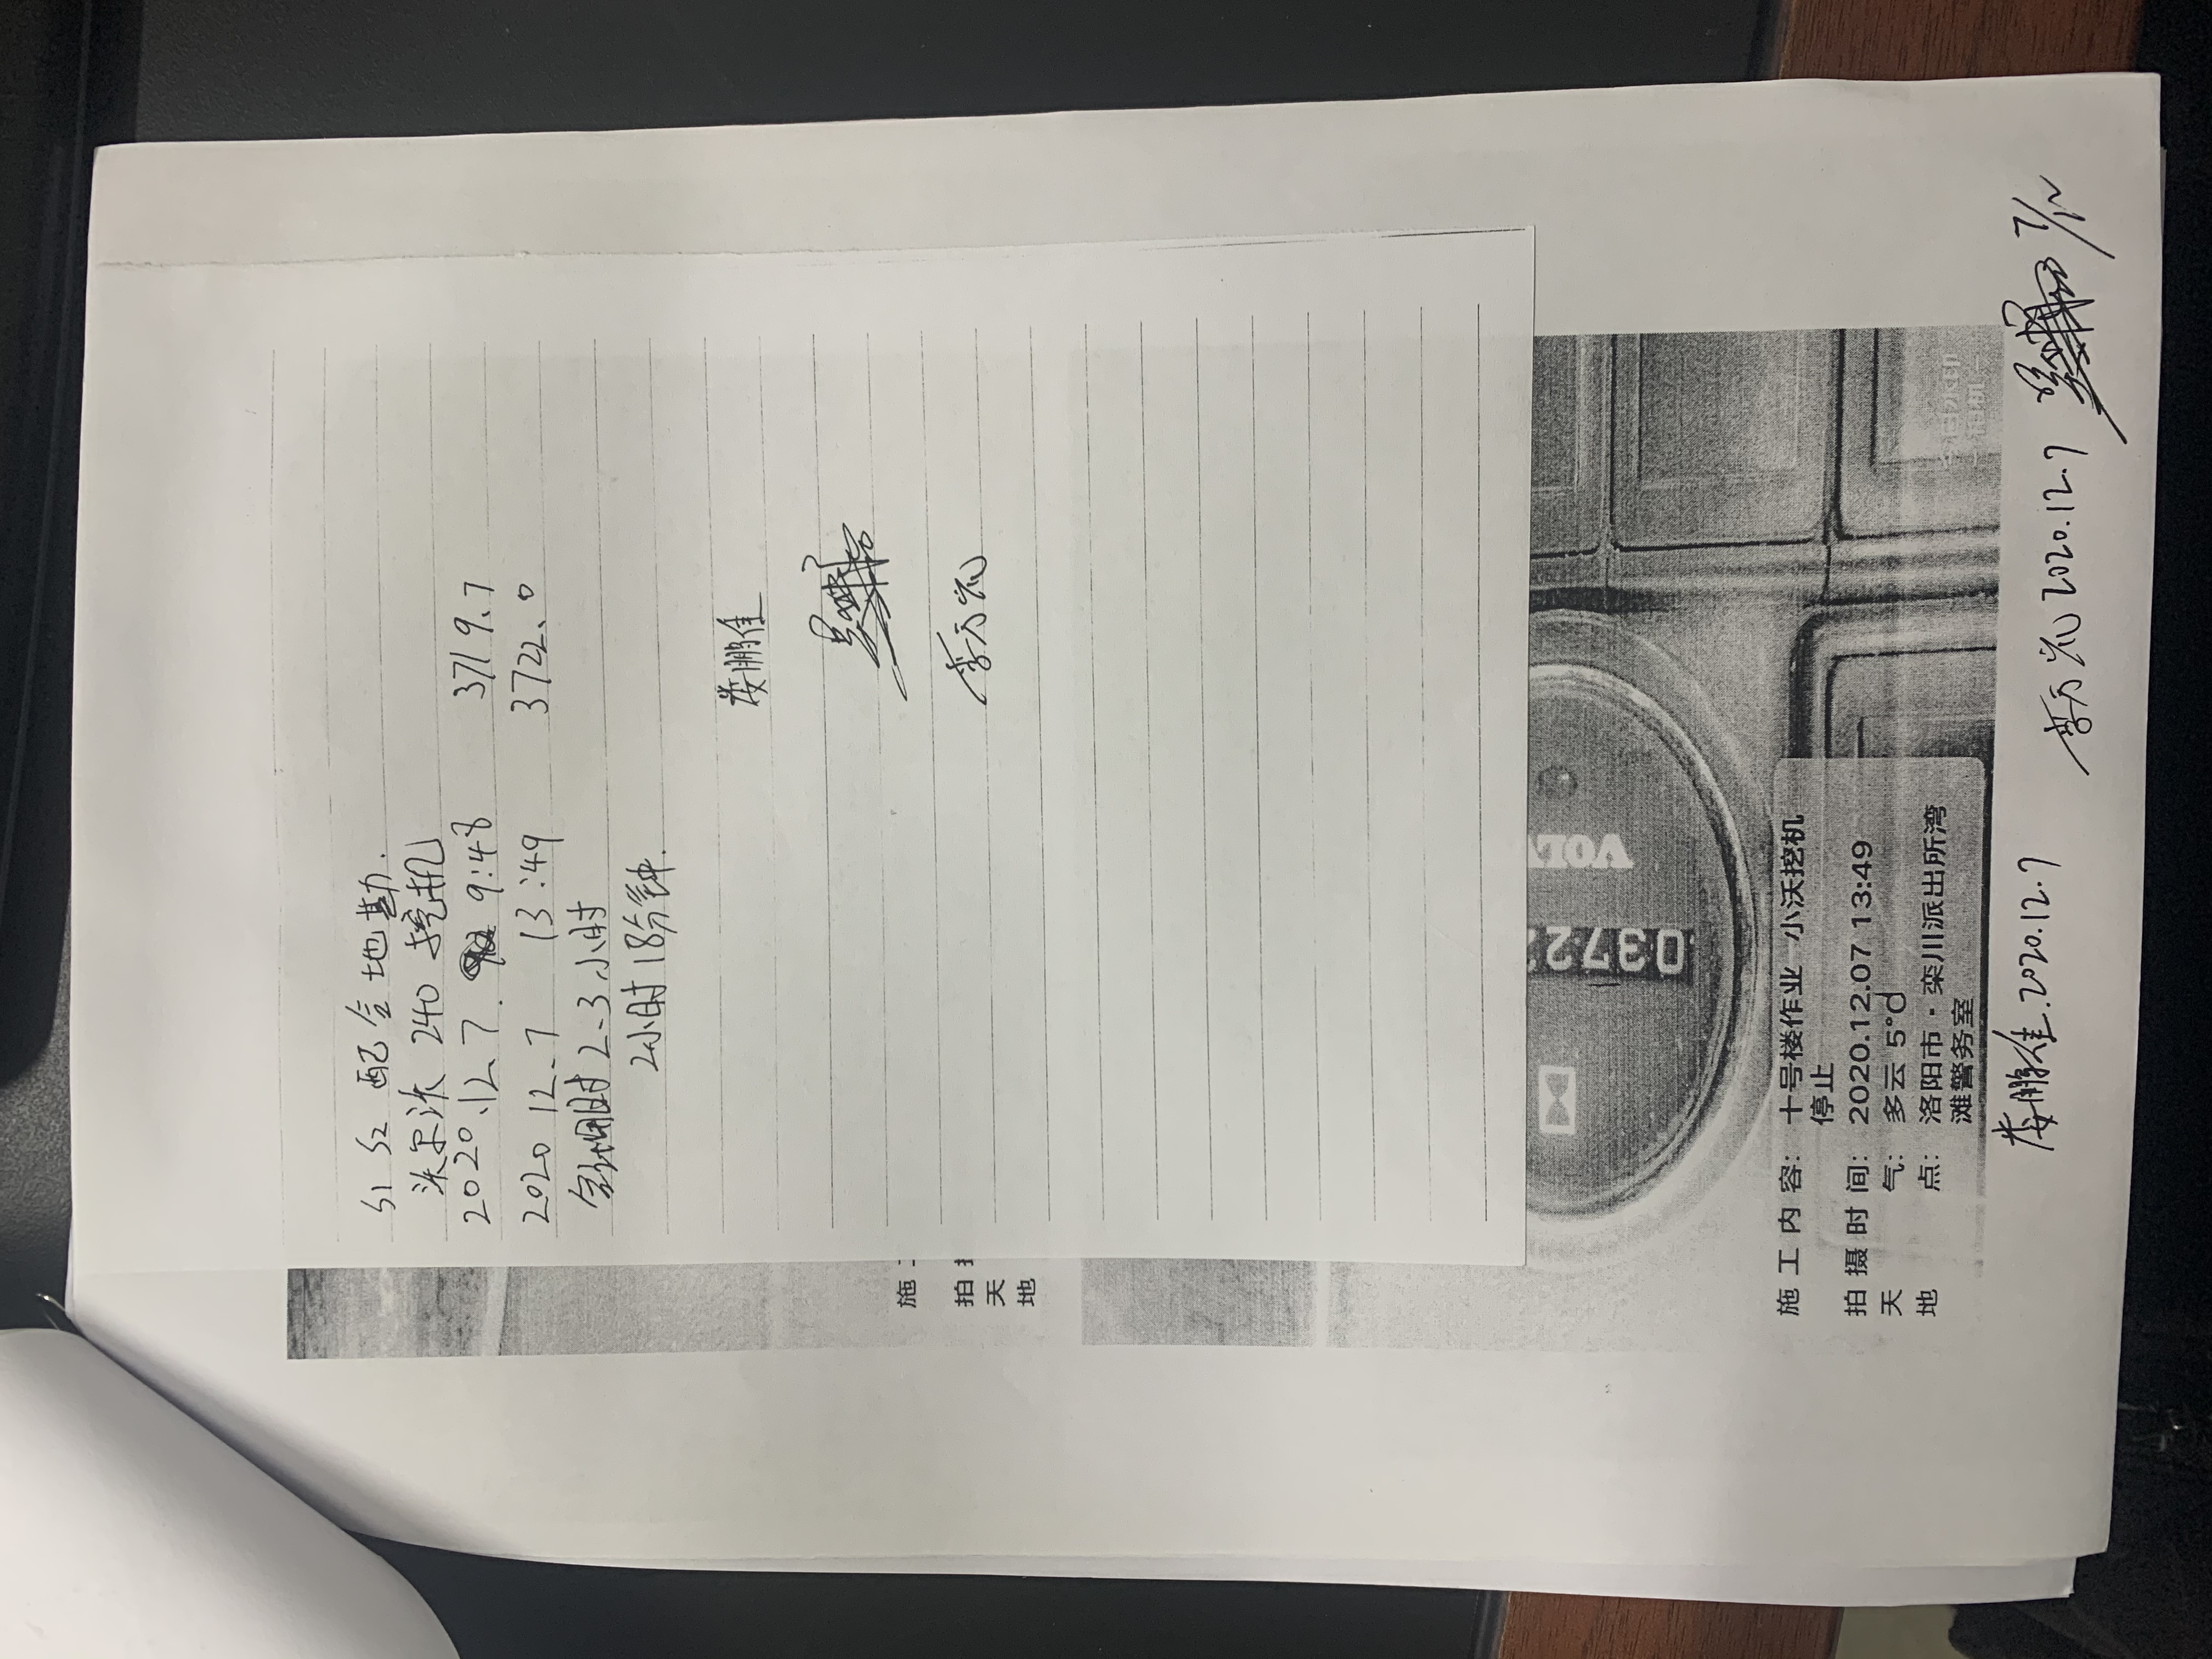 S1 S2 配合地勘.
沃尔沃 240 挖机
2020.12.7. 9:48 3719.7
2020 12.7 13:49 3722.0
2.3小时
2小时18分钟.
娄鹏佳
施
拍
天
地
VOL
0372
施工内容: 十号楼作业 小沃挖机
停止
拍摄时间: 2020.12.07 13:49
天气: 多云 5°C
地点: 洛阳市·栾川派出所湾
滩警务室
今日水印
相机
娄鹏佳.2020.12.7
2020.12.7
7/12